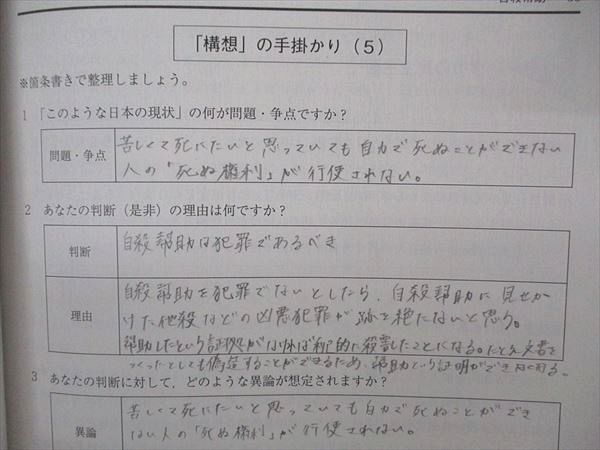 自殺幇助
「構想」の手掛かり(5)
※箇条書きで整理しましょう。
1 「このような日本の現状」の何が問題・争点ですか?
問題・争点
苦しくて死にたいと思っていても自力で死ぬことができない
人の「死ぬ権利」が行使されない。
2 あなたの判断(是非)の理由は何ですか?
判断
自殺幇助は犯罪であるべき
理由
自殺幇助を犯罪でないとしたら、自殺幇助に見せか
けた他殺などの凶悪犯罪が跡を絶たないと思う。
幇助したという証拠がなければ利己的に殺害したことになる。たとえ文書を
つくったとしても偽造することができるため、幇助という証明ができなくなる。
3 あなたの判断に対して、どのような異論が想定されますか?
異論
苦しくて死にたいと思っていても自力で死ぬことができ
ない人の「死ぬ権利」が行使されない。